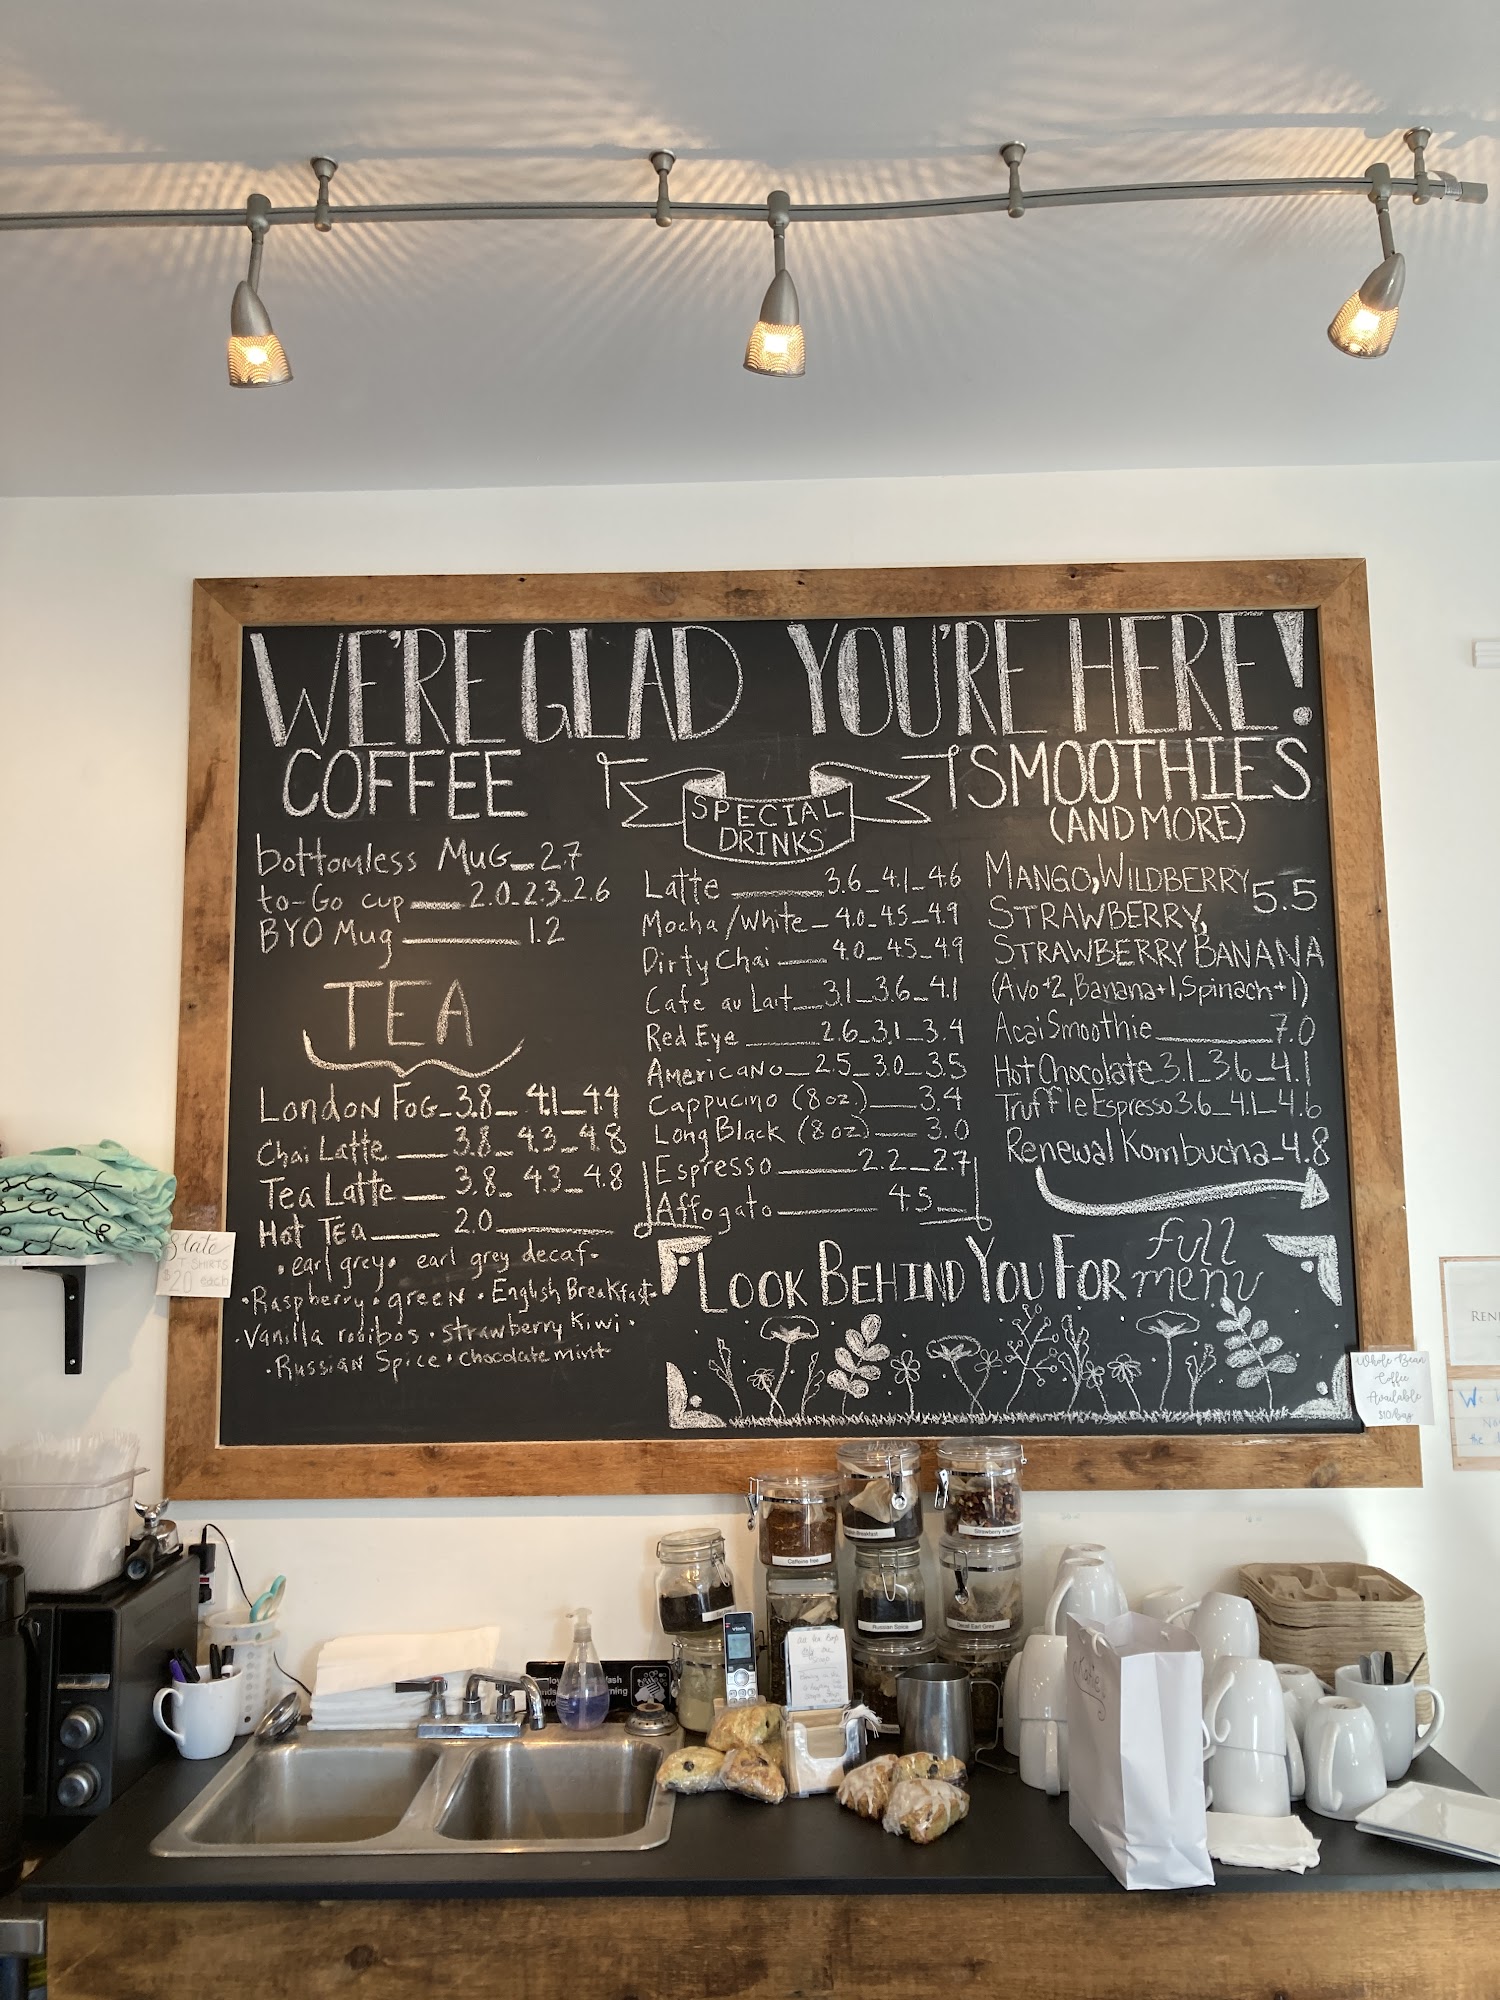 WE'RE GLAD YOU'RE HERE!
COFFEE
bottomless MUG 2.7
to-Go cup 2.0 2.3 2.6
BYO Mug 1.2
TEA
LONDON FOG 3.8 4.1 4.4
Chai Latte 3.8 4.3 4.8
Tea Latte 3.8 4.3 4.8
Hot TEA 2.0
• earl grey • earl grey decaf •
• Raspberry • green • English Breakfast •
• Vanilla rooibos • strawberry kiwi •
• Russian Spice • chocolate mint
SPECIAL
DRINKS
Latte 3.6 4.1 4.6
Mocha/White 4.0 4.5 4.9
Dirty Chai 4.0 4.5 4.9
Cafe au Lait 3.1 3.6 4.1
Red Eye 2.6 3.1 3.4
AMERICANO 2.5 3.0 3.5
Cappucino (8oz.) 3.4
Long Black (8oz) 3.0
Espresso 2.2 2.7
Affogato 4.5
SMOOTHIES
(AND MORE)
MANGO, WILDBERRY 5.5
STRAWBERRY,
STRAWBERRY BANANA
(Avo+2, Banana+1, Spinach+1)
Acai Smoothie 7.0
Hot Chocolate 3.1 3.6 4.1
Truffle Espresso 3.6 4.1 4.6
Renewal Kombucha 4.8
LOOK BEHIND YOU FOR full
menu
Slate
T SHIRTS
$20 each
Whole Bean
Coffee
Available
$10/bag
Caffeine free
Breakfast
Strawberry Kiwi
Russian Spice
Decaf Earl Grey
vtech